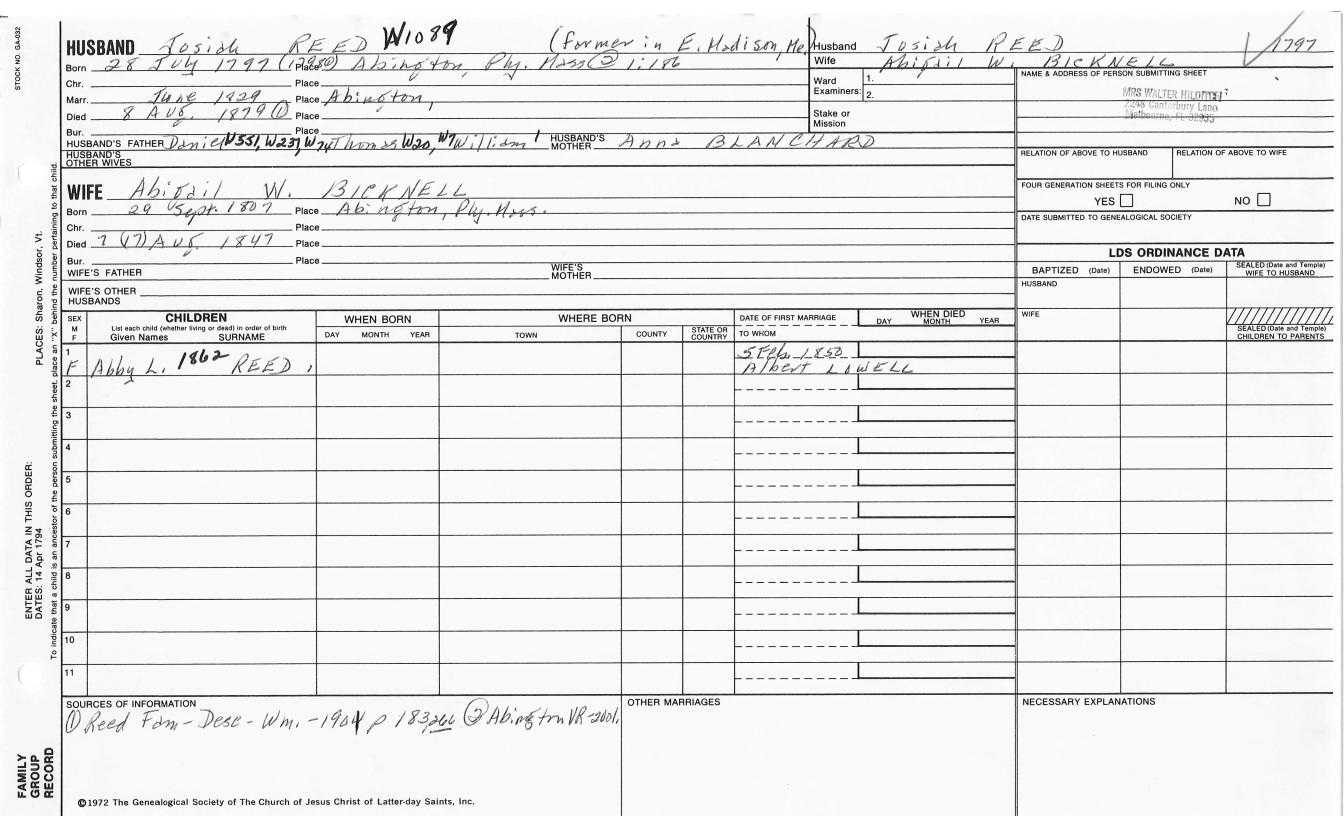 STOCK NO. GA-032
PLACES: Sharon, Windsor, Vt.
ENTER ALL DATA IN THIS ORDER:
DATES: 14 Apr 1794
To indicate that a child is an ancestor of the person submitting the sheet, place an "X" behind the number pertaining to that child.
FAMILY GROUP RECORD
HUSBAND Josiah REED W1089 (farmer in E. Madison, Me.)
Born 28 July 1797 Place Abington, Ply. Mass ② 1:186
Chr. Place
Marr. June 1829 Place Abington,
Died 8 Aug. 1879 ① Place
Bur. Place
HUSBAND'S FATHER Daniel W551, W237, W74 Thomas W20, W7 William 1 HUSBAND'S MOTHER Anna BLANCHARD
HUSBAND'S OTHER WIVES
WIFE Abigail W. BICKNELL
Born 29 Sept. 1807 Place Abington, Ply. Mass.
Chr. Place
Died 7 (17) Aug. 1847 Place
Bur. Place
WIFE'S FATHER WIFE'S MOTHER
WIFE'S OTHER HUSBANDS
Husband Josiah REED 1797
Wife Abigail W. BICKNELL
Ward Examiners: 1.
2.
Stake or Mission
NAME & ADDRESS OF PERSON SUBMITTING SHEET
MRS WALTER
2248 Canterbury Lane
Melbourne, FL 32935
RELATION OF ABOVE TO HUSBAND RELATION OF ABOVE TO WIFE
FOUR GENERATION SHEETS FOR FILING ONLY
YES NO
DATE SUBMITTED TO GENEALOGICAL SOCIETY
LDS ORDINANCE DATA
BAPTIZED (Date) ENDOWED (Date) SEALED (Date and Temple) WIFE TO HUSBAND
HUSBAND
WIFE
SEALED (Date and Temple) CHILDREN TO PARENTS
SEX M F CHILDREN WHEN BORN WHERE BORN DATE OF FIRST MARRIAGE WHEN DIED
List each child (whether living or dead) in order of birth
Given Names SURNAME DAY MONTH YEAR TOWN COUNTY STATE OR COUNTRY TO WHOM DAY MONTH YEAR
1 F Abby L. 1862 REED, 5 Feb. 1850
Albert LOWELL
2
3
4
5
6
7
8
9
10
11
SOURCES OF INFORMATION
① Reed Fam - Desc - Wm. - 1904 p 183, 266 ② Abington VR - 2001.
OTHER MARRIAGES
NECESSARY EXPLANATIONS
©1972 The Genealogical Society of The Church of Jesus Christ of Latter-day Saints, Inc.